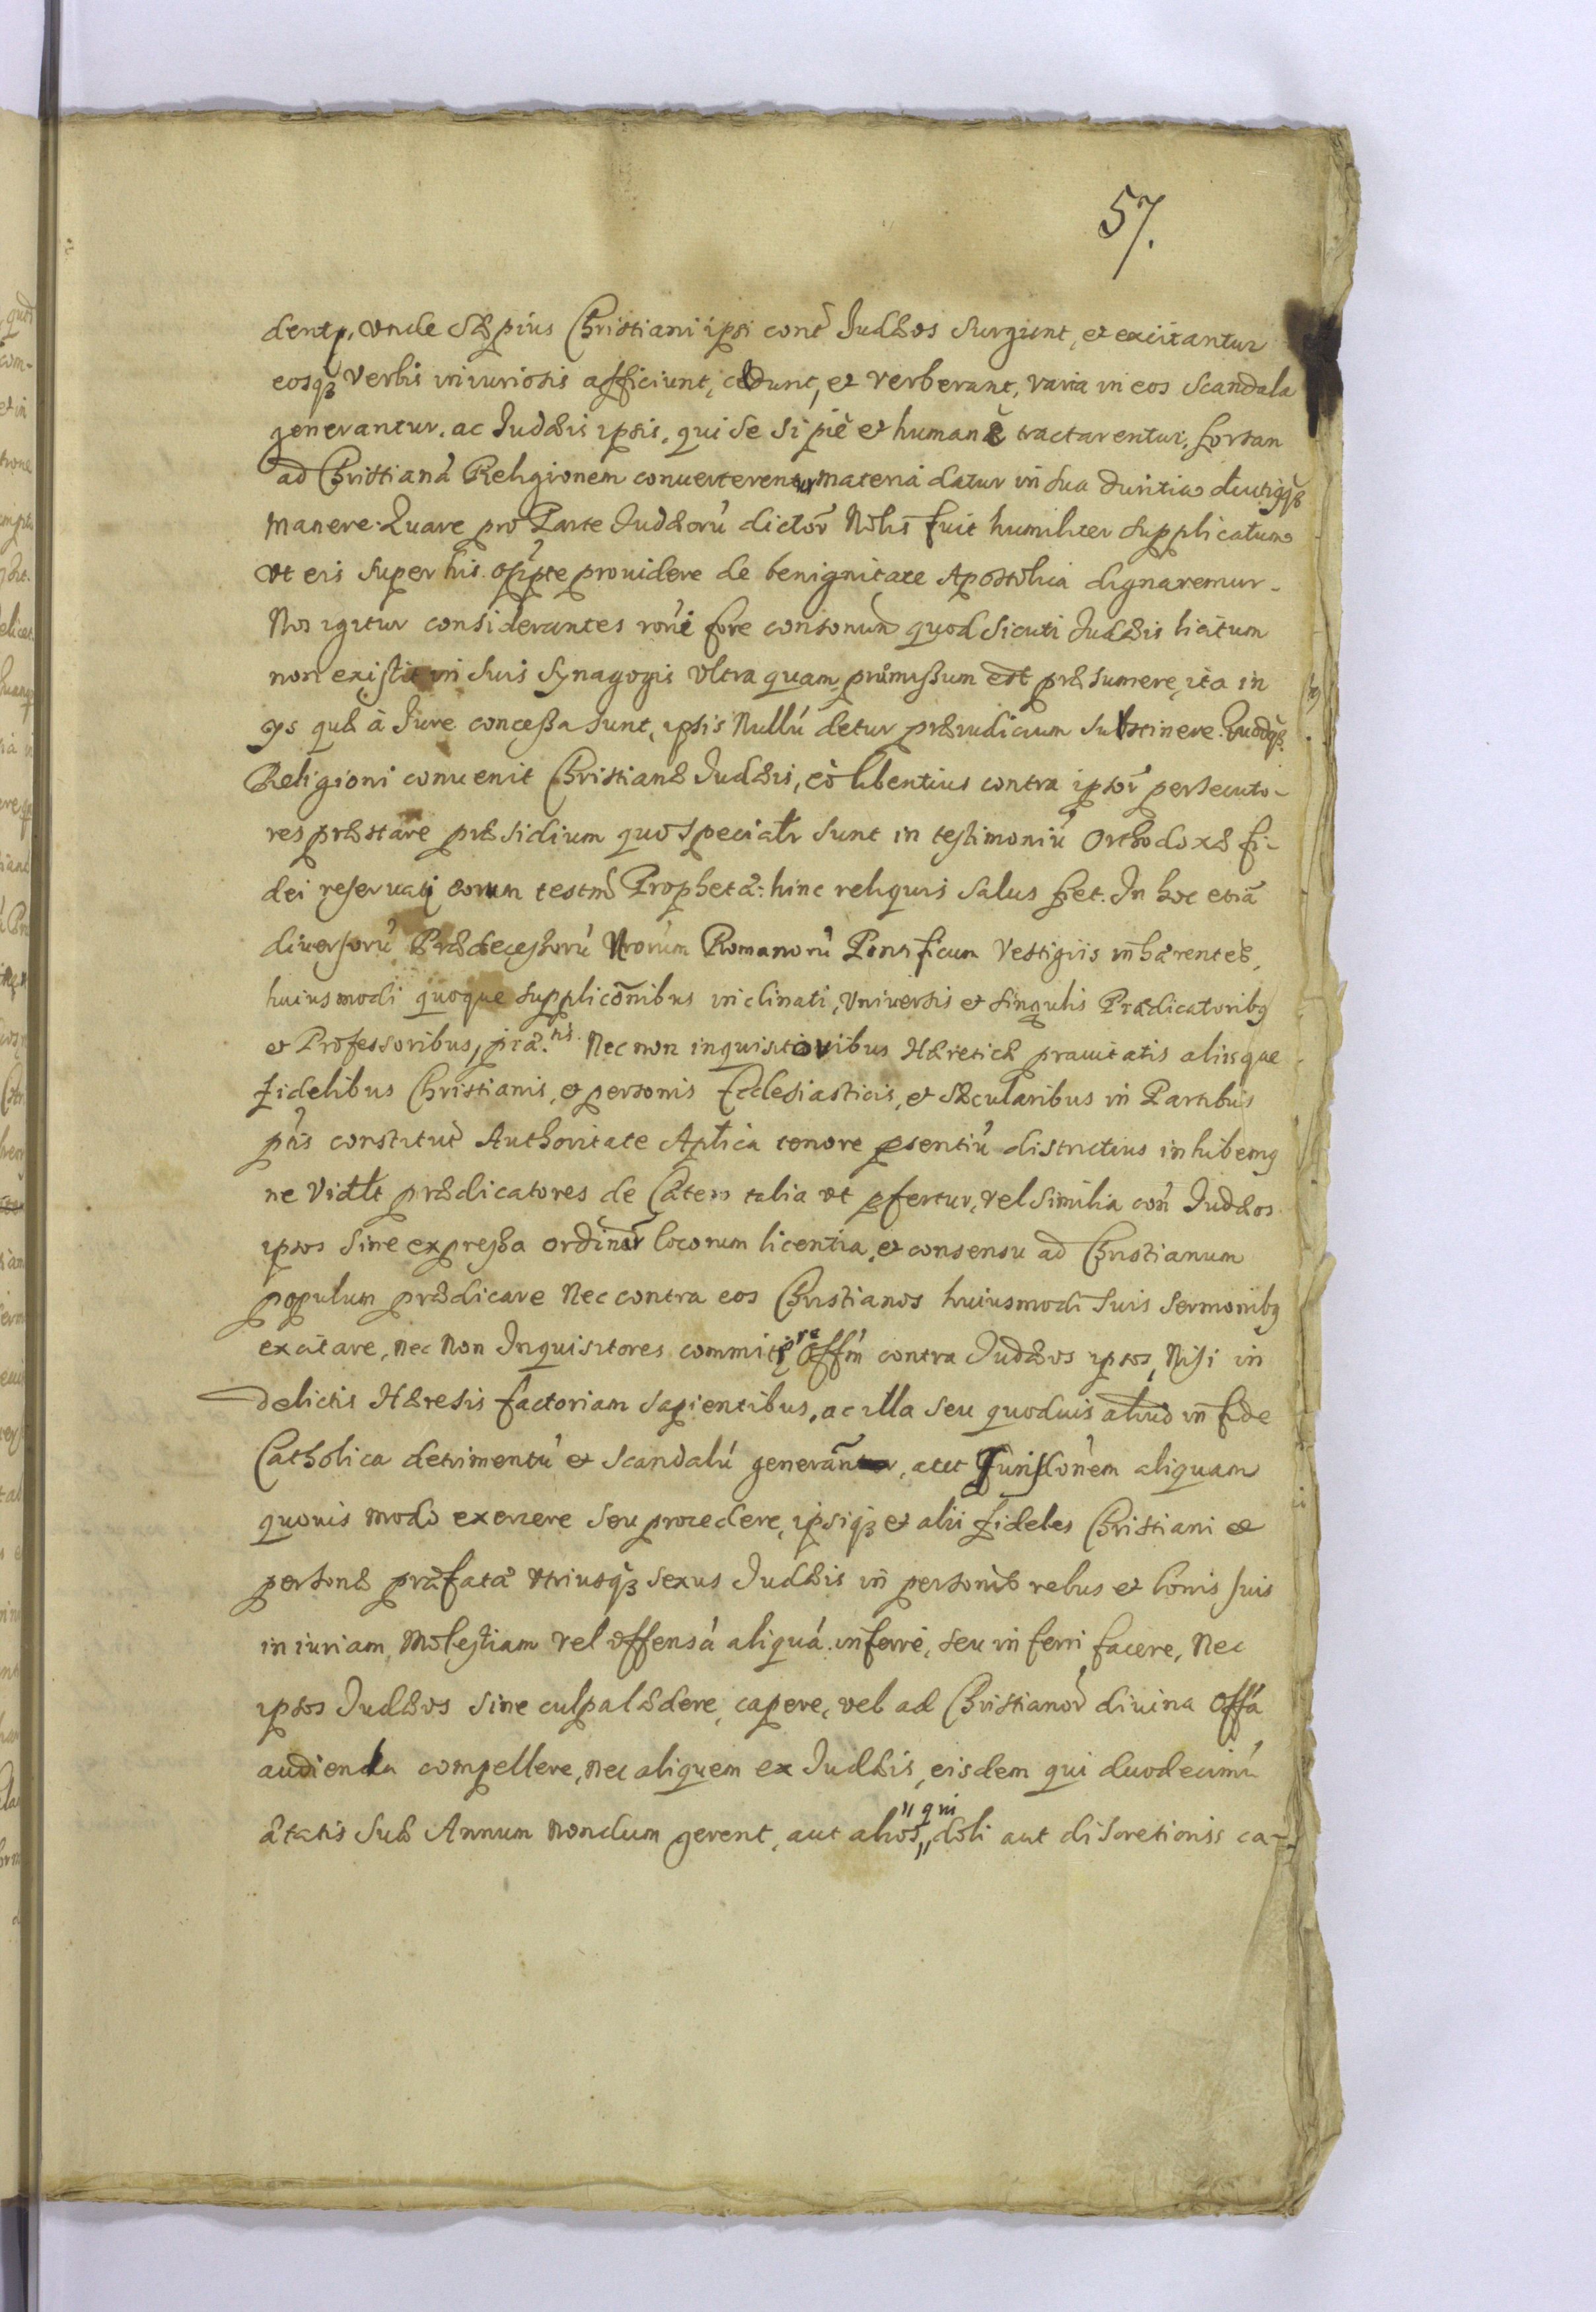 57.
dentq, vnde sæpius Christiani ipsi cont̃ Judæos surgunt, et excitantur
eosq₃ verbis iniuriosis afficiunt, cædunt, et verberant, varia in eos scandala
generantur. ac Judæis ipsis, qui se si piè et humanè tractarentur, forsan
ad Christianá Religionem conuerterentur, materia datur in sua duritia
manere. Quare pro Parte Judæorú dictor̃ Nobis fuit humiliter supplicatum
vt eis super his opp̃te prouidere de benignitate Apostolica dignaremur.
Nos igitur considerantes roñi fore consonum quod sicuti Judæis licitum
non existit in suis synagogis vltra quam pr̃missum est præsumere, ita in
ys quæ à Jure concessa sunt, ipsis nullú detur præiudicium substinere. Quodq₃
Religioni conuenit Christianæ Judæis, eò libentius contra ipsor̃ persecuto-
res præstare præsidium quo specialr sunt in testimoniú Orthodoxæ fi-
dei reseruati eorum testm̃ Prophetâ: hinc reliquis salus fiet. In hoc etiã
diuersorú Prædecessorú Nrorum Romanorú Pontificum vestigiis inhærentes,
huiusmodi quoque supplicõnibus inclinati, Vniuersis et singulis Prædicatorib9
et Professoribus, prã.tis Nec non inquisitoribus Hæreticæ prauitatis aliisque
fidelibus Christianis, et personis Ecclesiasticis, et sæcularibus in Partibus
pñs constitut̃ Authoritate Aptica tenore psentiú districtius inhibem9
ne vidlt prædicatores de Cætero talia vt pfertur, vel similia coñ Judæos
ipsos sine expressa ordinar̃ locorum licentia, et consensu ad Christianum
populum prædicare Nec contra eos Christianos huiusmodi suis sermonib9
excitare, nec non Inquisitores commiss offm̃ contra Judæos ipsos, Nisi in
delictis Hæresis factoriam sapientibus, ac illa seu quoduis aliud in fide
Catholica detrimentú et scandalú generãnt, aut Jurisdõnem aliquam
quouis modo exercere seu procedere, ipsiq₃ et alii fideles Christiani et
personæ præfatæ vtriusq₃ sexus Judæis in personis rebus et bonis suis
iniuriam, Molestiam vel offensá aliquá inferre, seu inferri facere, Nec
ipsos Judæos sine culpa lædere, capere, vel ad Christianor̃ diuina offa
audienda compellere, nec aliquem ex Judæis, eisdem qui duodecimú
ætatis suæ Annum nondum gerent, aut alios „qui doli aut discretionis ca-